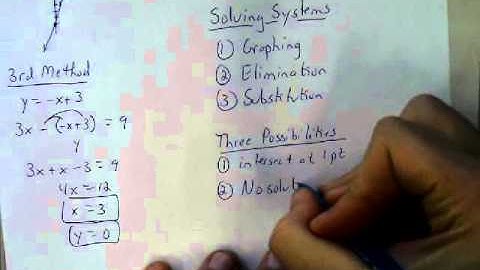 3rd Method
y = -x+3
3x - (-x+3) = 9
y
3x + x - 3 = 9
4x = 12
x = 3
y = 0
Solving Systems
① Graphing
② Elimination
③ Substitution
Three Possibilities
① intersect at 1 pt
② No solut